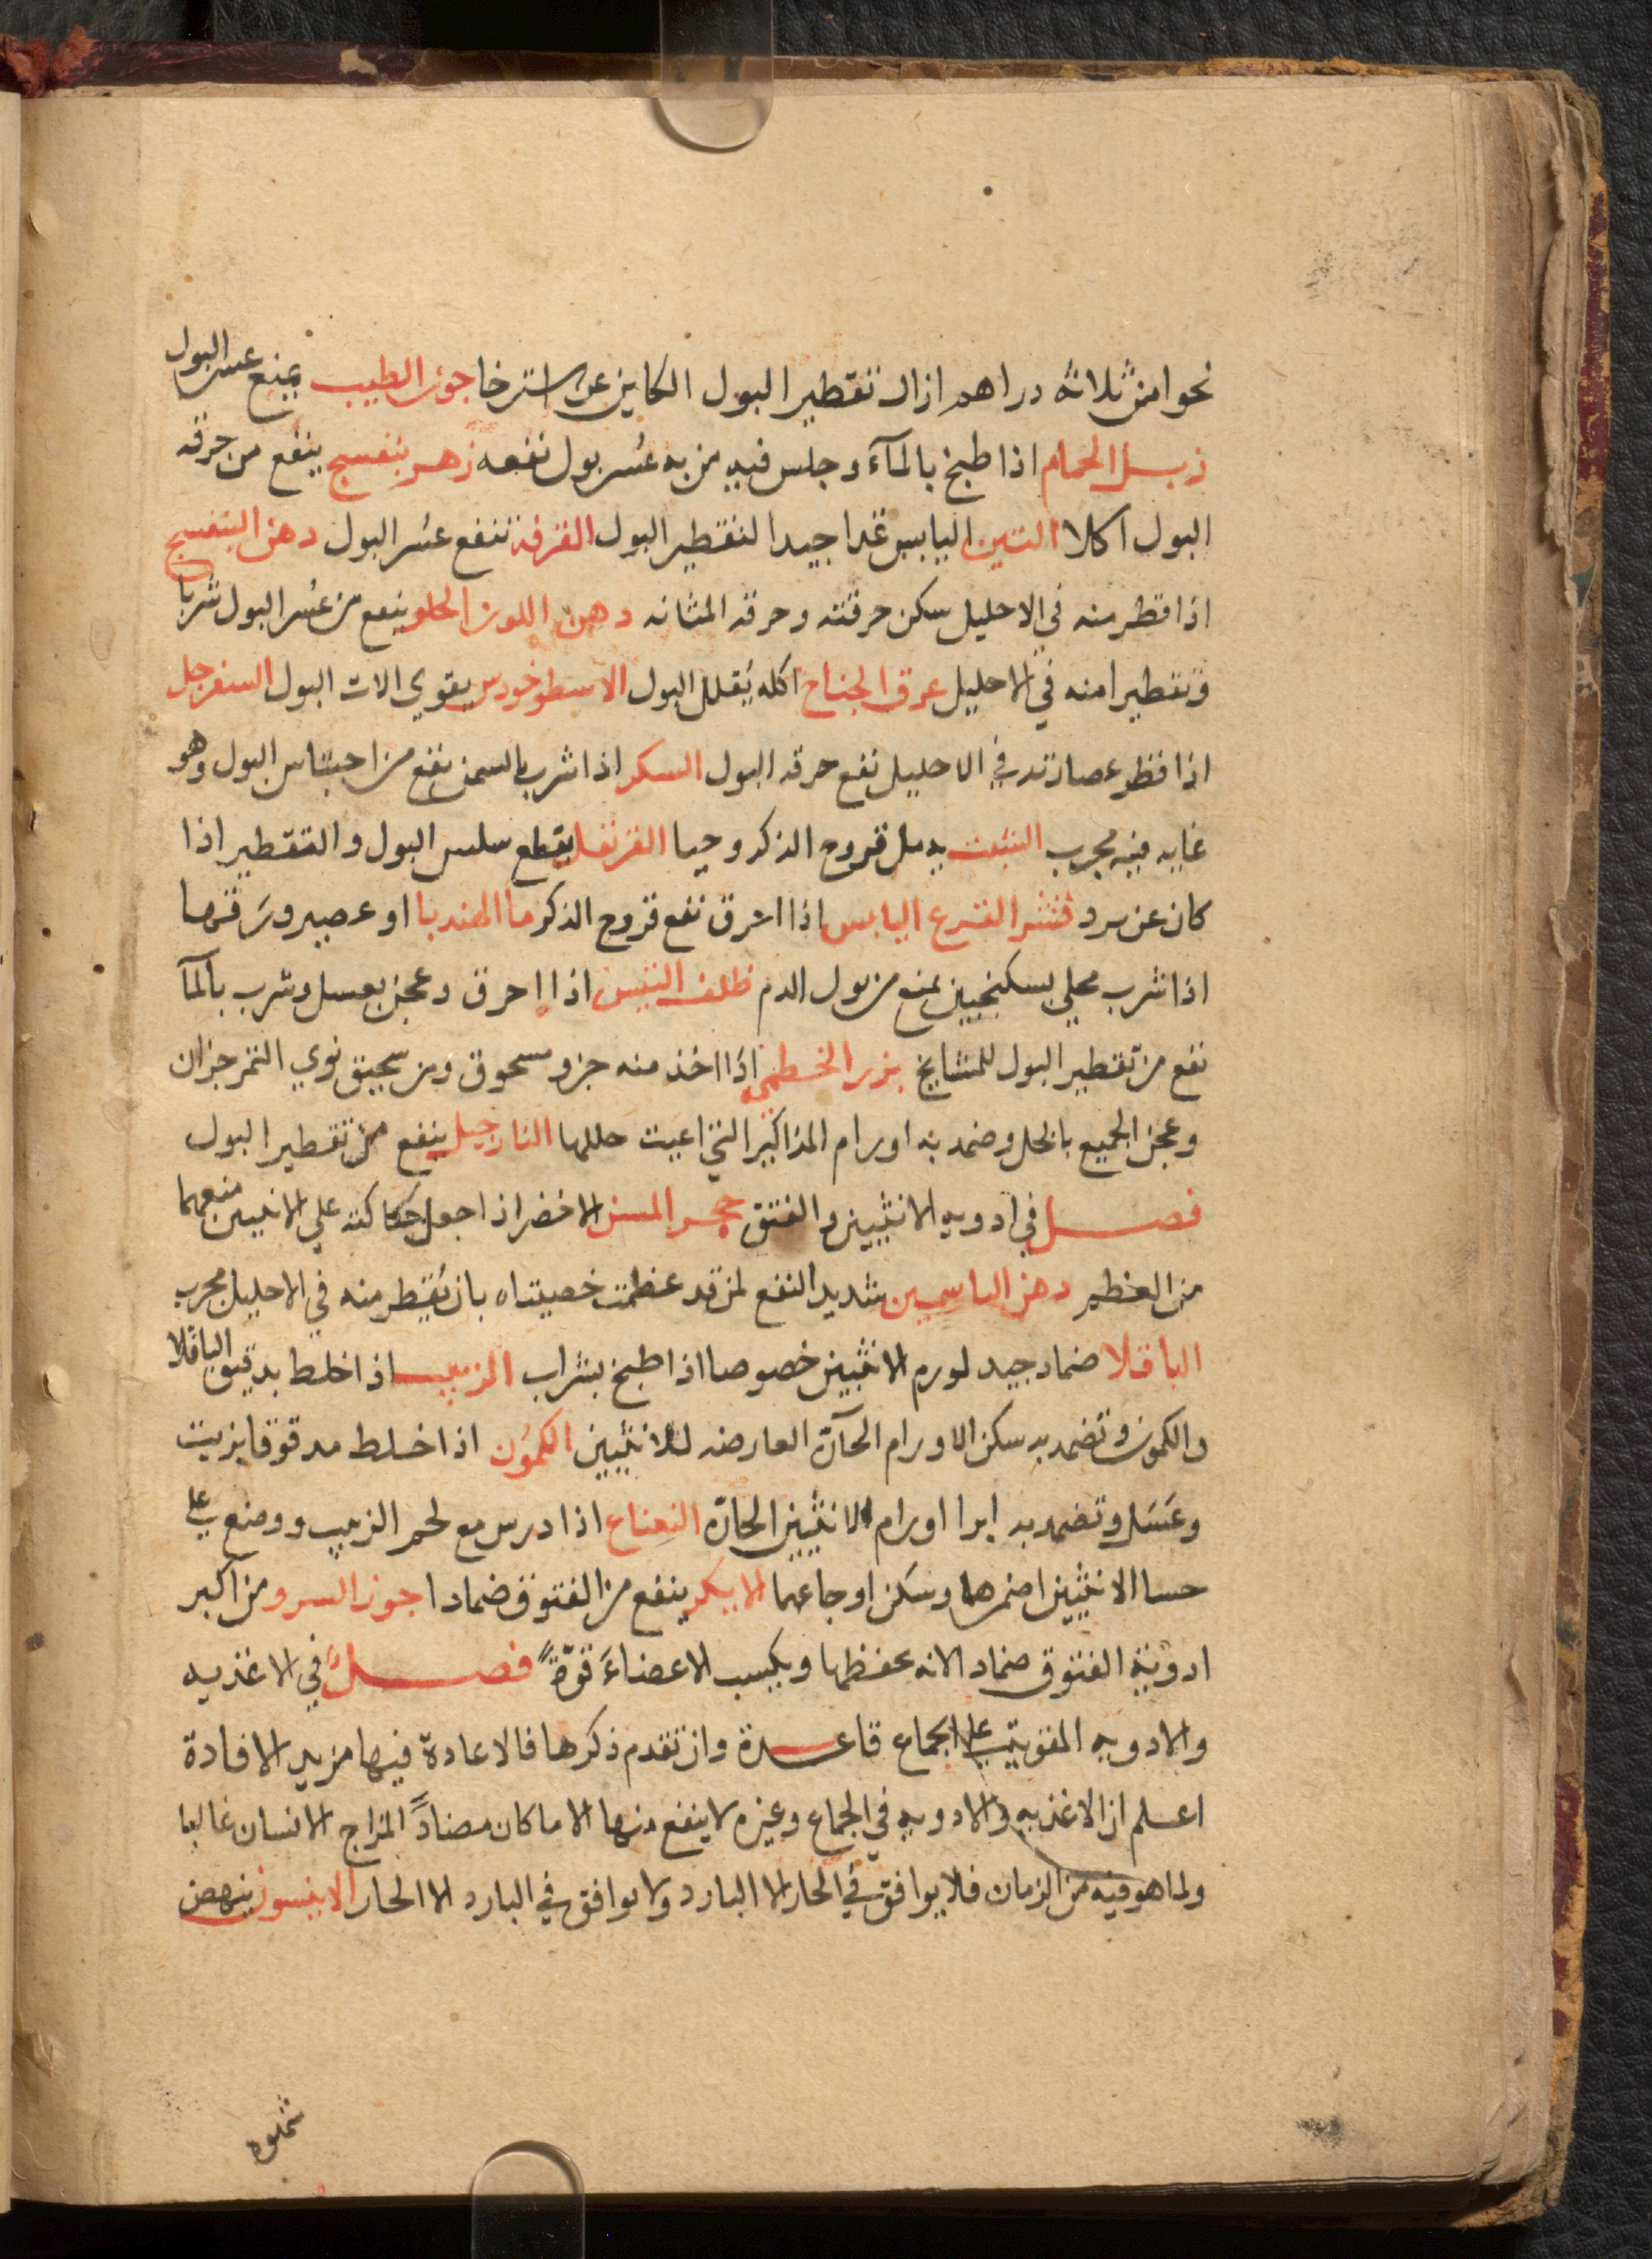 نحوا من ثلاثة دراهم ازال تقطير البول الكاين عن استرخا جوز الطيب يمنع عسر البول
زبل الحمام اذا طبخ بالمآء وجلس فيه من به عُسر بول نفعه زهر بنفسج ينفع من حرقه
البول اكلا التين اليابس غدا جيدا لتقطير البول القرفة تنفع عسر البول دهن البنفسج
اذا قطر منه في الاحليل سكن حرقته وحرقه المثانه دهن اللوز الحلو ينفع من عُسر البول شربا
وتقطيرا منه في الاحليل عرق الجناح اكله يُقلل البول الاسطوخودس يقوي الات البول السفرجل
اذا قطر عصارته في الاحليل نفع حرقه البول السكر اذا شرب بالسمن نفع من احتباس البول وهو
غايه فيه مجرب الشبت يدمل قروح الذكر وحيا القرنفل يقطع سلس البول والتقطير اذا
كان عن برد قشر القرع اليابس اذا احرق نفع قروح الذكر ما الهندبا او عصير ورقها
اذا شرب محلي بسكنجبين يمنع من بول الدم ظلف التيس اذا احرق وعجن بعسل وشرب بالمآ
نفع من تقطير البول للمشايخ بزر الخطمي اذا اخذ منه جزو مسحوق ومن سحيق نوي التمر جزان
وعجن الجميع بالخل وضمد به اورام المذاكير التي اعيت حللها النارجيل ينفع من تقطير البول
فصل في ادويه الانثيين والفتق حجر المسن الاخضر اذا جعل حكاكته علي الانثيين منعهما
من العظم دهن الياسمين شديد النفع لمن قد عظمت خصيتاه بان يُقطر منه في الاحليل مجرب
الباقلا ضماد جيد لورم الانثيين خصوصا اذا طبخ بشراب الزبيب اذا خلط بدقيق الباقلا
والكمون وتضمد به سكن الاورام الحآرة العارضه للانثيين الكمُون اذا خلط مدقوقا بزيت
وعَسَل وتضمد به ابرا اورام الانثيين الحارّه النعناع اذا درس مع لحم الزبيب ووضع علي
حسا الانثيين اضمرهما وسكن اوجاعهما الابكر ينفع من الفتوق ضمادا جوز السرو من اكبر
ادوية الفتوق ضمادا لانه يحفظها ويكسب الاعضاءَ قوّةً فصل في الاغذيه
والادويه المقويه علي الجماع قاعدة وان تقدم ذكرها فالاعادة فيها مزيد الافادة
اعلم ان الاغذيه والادويه في الجماع وغيره لا ينفع منها الا ما كان مضاداً لمزاج الانسان غالبا
ولما هو فيه من الزمان فلا يوافق في الحار الا البارد ولا يوافق في البارد الا الحار الانيسون ينهض
شهوه